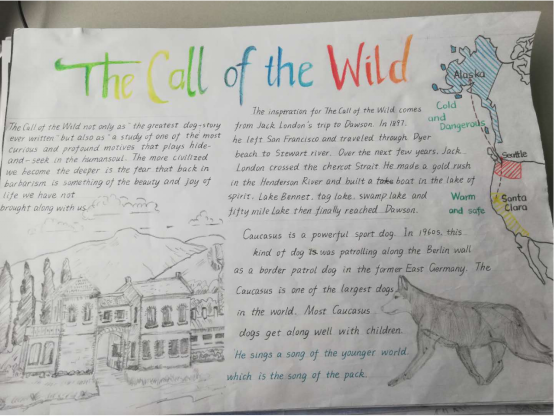 The Call of the Wild
The Call of the Wild not only as 'the greatest dog-story
ever written' but also as 'a study of one of the most
curious and profound motives that plays hide-
and-seek in the humansoul. The more civilized
we become the deeper is the fear that back in
barbarism is something of the beauty and joy of
life we have not
brought along with us.
The inspiration for The Call of the Wild comes
from Jack London's trip to Dawson. In 1897.
he left San Francisco and traveled through Dyer
beach to Stewart river. Over the next few years, Jack
London crossed the chercot Strait He made a gold rush
in the Henderson River and built a boat in the lake of
spirit. Lake Bennet. tag lake. swamp lake and
fifty mile Lake then finally reached Dawson.
Caucasus is a powerful sport dog. In 1960s, this
kind of dog was patrolling along the Berlin wall
as a border patrol dog in the former East Germany. The
Caucasus is one of the largest dogs
in the world. Most Caucasus
dogs get along well with children.
He sings a song of the younger world.
which is the song of the pack.
Alaska
Cold
and
Dangerous
Seattle
Warm
and safe
Santa
Clara